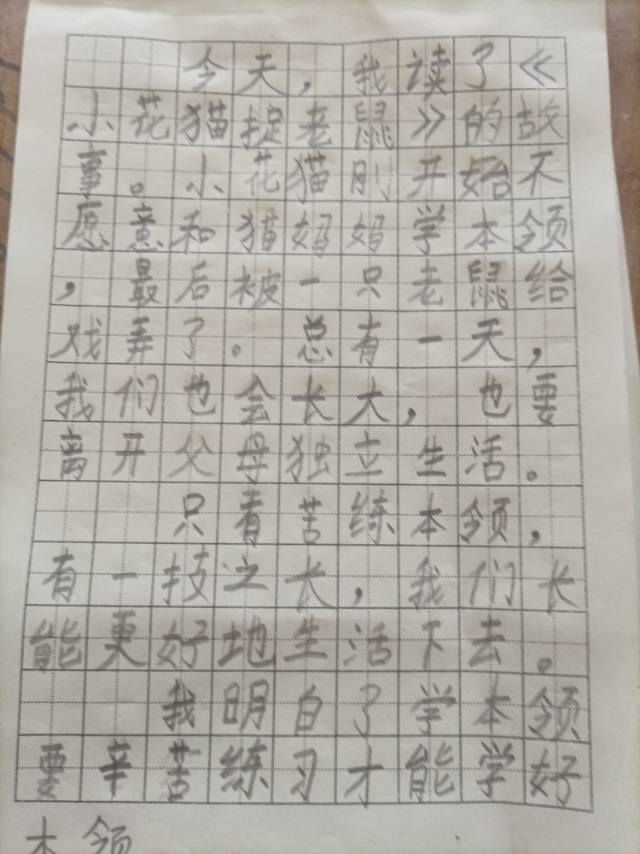 今天，我读了《
小花猫捉老鼠》的故
事。小花猫刚开始不
愿意和猫妈妈学本领
，最后被一只老鼠给
戏弄了。总有一天，
我们也会长大，也要
离开父母独立生活。
只有苦练本领，
有一技之长，我们长
能更好地生活下去。
我明白了学本领
要辛苦练习才能学好
本领